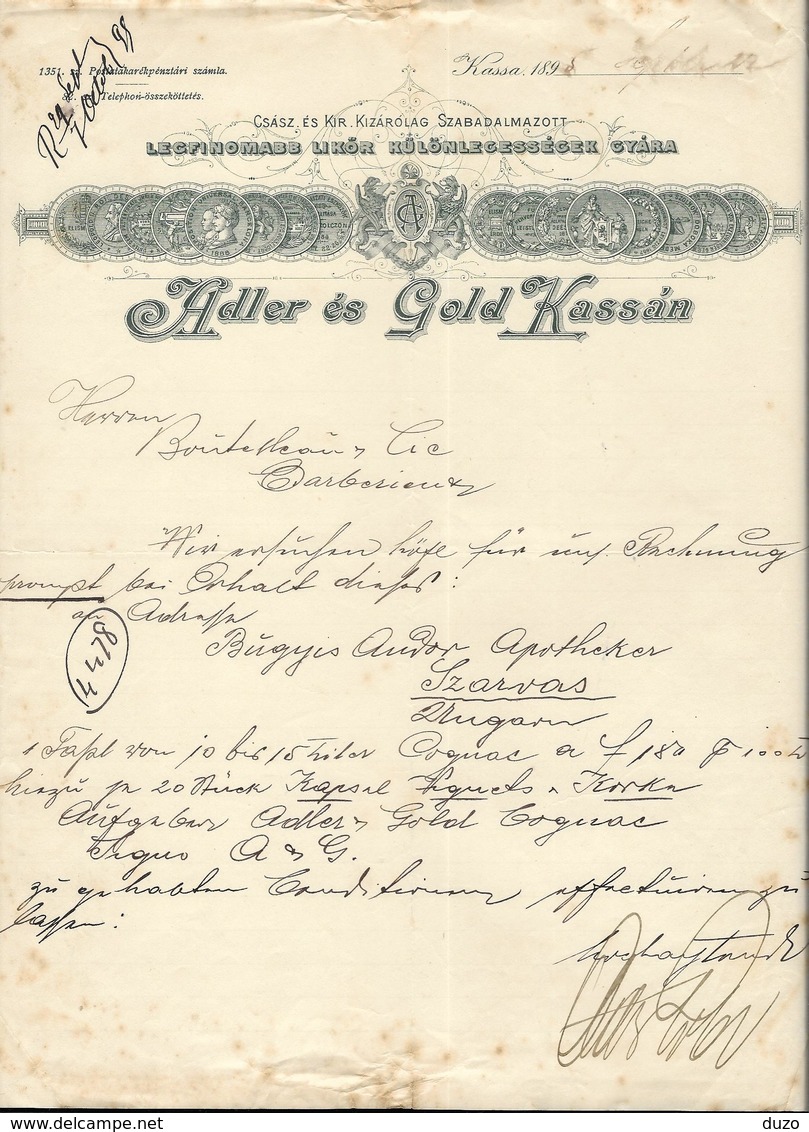 1351. sz. Postatakarékpénztári számla.
Telephon-összeköttetés.
Kassa, 189
CSÁSZ. ÉS KIR. KIZÁRÓLAG SZABADALMAZOTT
LEGFINOMABB LIKŐR KÜLÖNLEGESSÉGEK GYÁRA
Adler és Gold Kassán
Herren
Boutelleau & Cie
Barbezieux
Wir ersuchen höfl für uns. Rechnung
prompt bei Erhalt dieses:
an Adresse
Bugyis Andor Apotheker
Szarvas
Ungarn
1 Fassl von 10 bis 15 Liter Cognac a f 180
hiezu je 20 Stück Kapsel Etiquets & Korke
Aufgeber Adler & Gold Cognac
Signo A & G.
zu gehabten Conditionen effectuiren zu
lassen:
Hochachtend
www.delcampe.net
duzo